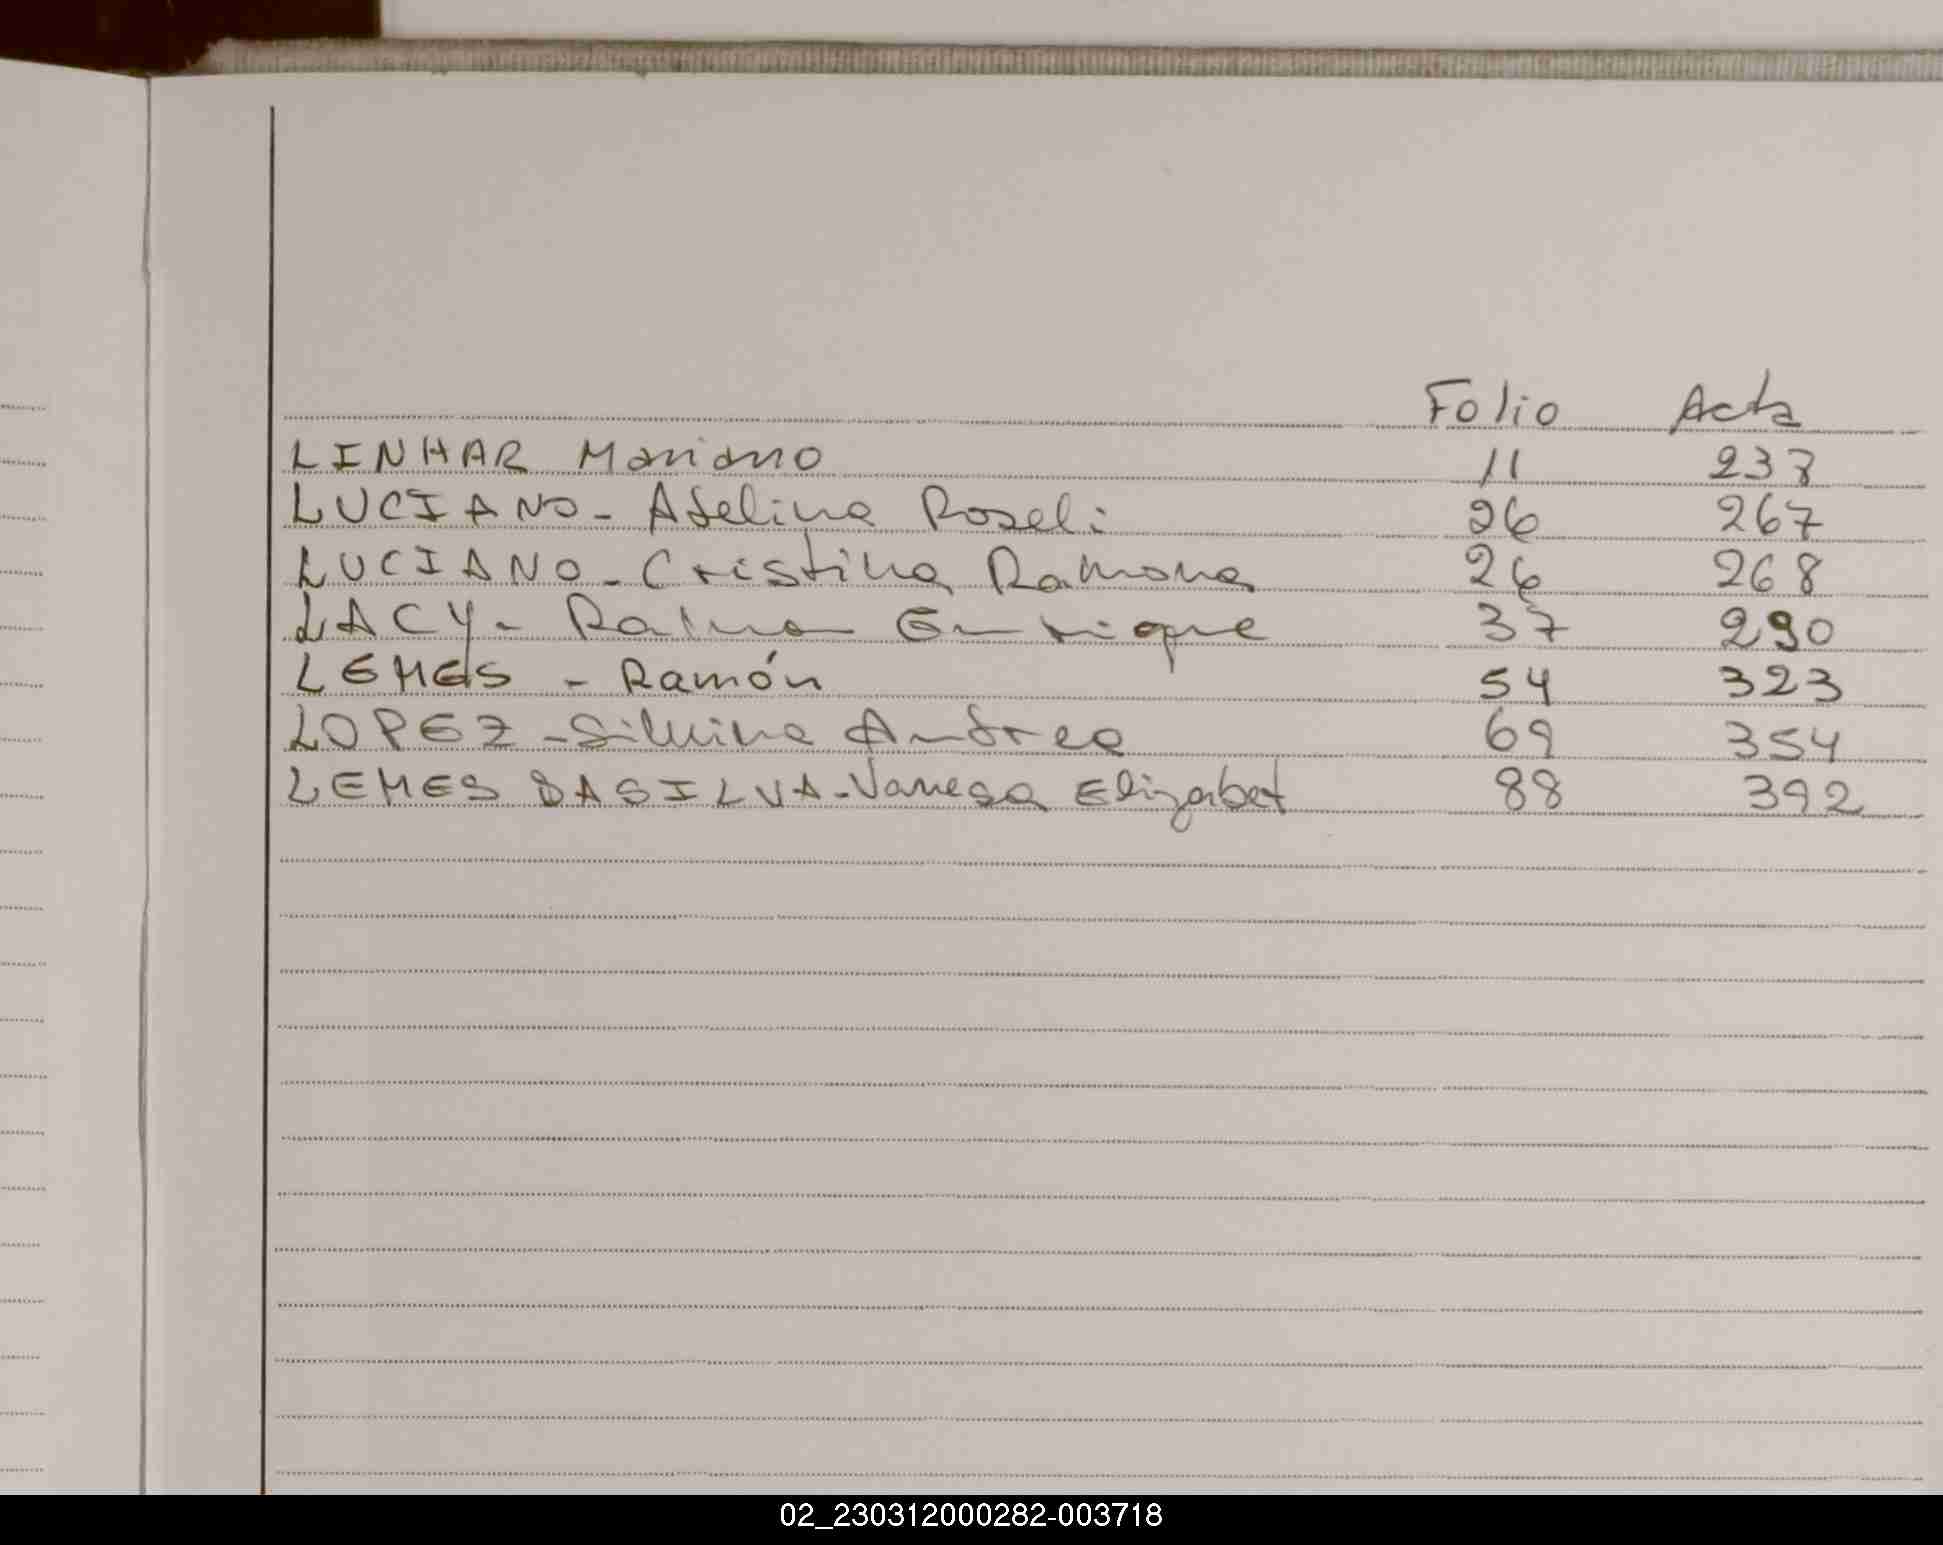 Folio Acta
LINHAR Mariano 11 237
LUCIANO - Adelina Roseli 26 267
LUCIANO - Cristina Ramona 26 268
LACY - Enrique 37 290
LEMES - Ramón 54 323
LOPEZ - Silvina Andrea 69 354
LEMES DASILVA - Vanesa Elizabet 88 392
02_230312000282-003718